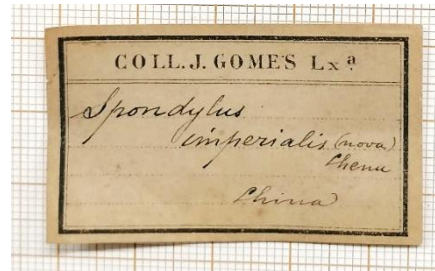 COLL. J. GOMES Lxª
Spondylus
imperialis (nova)
Chenu
China